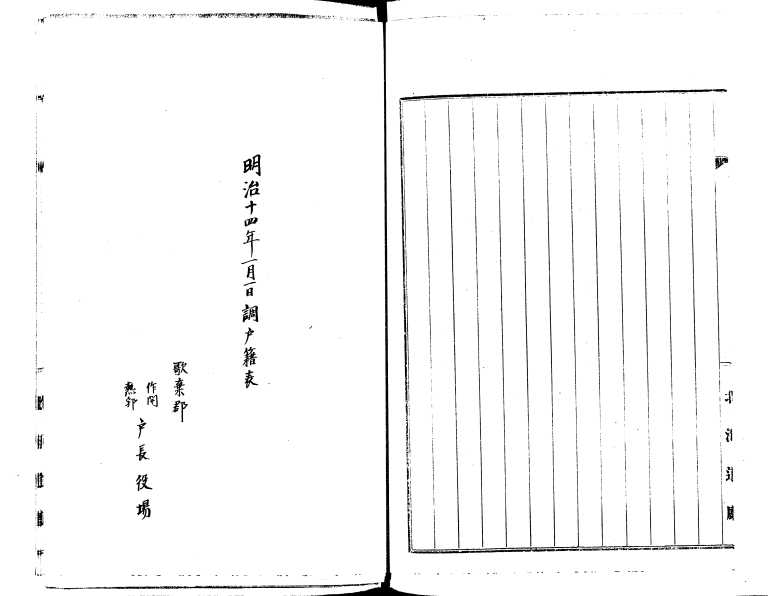 北海道廳
明治十四年一月一日調戸籍表
歌棄郡
作開
熱郛
戸長役場